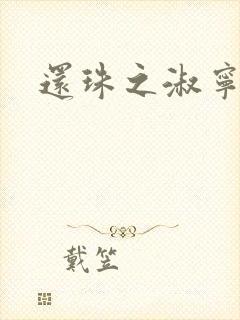 還珠之淑寧
戴笠